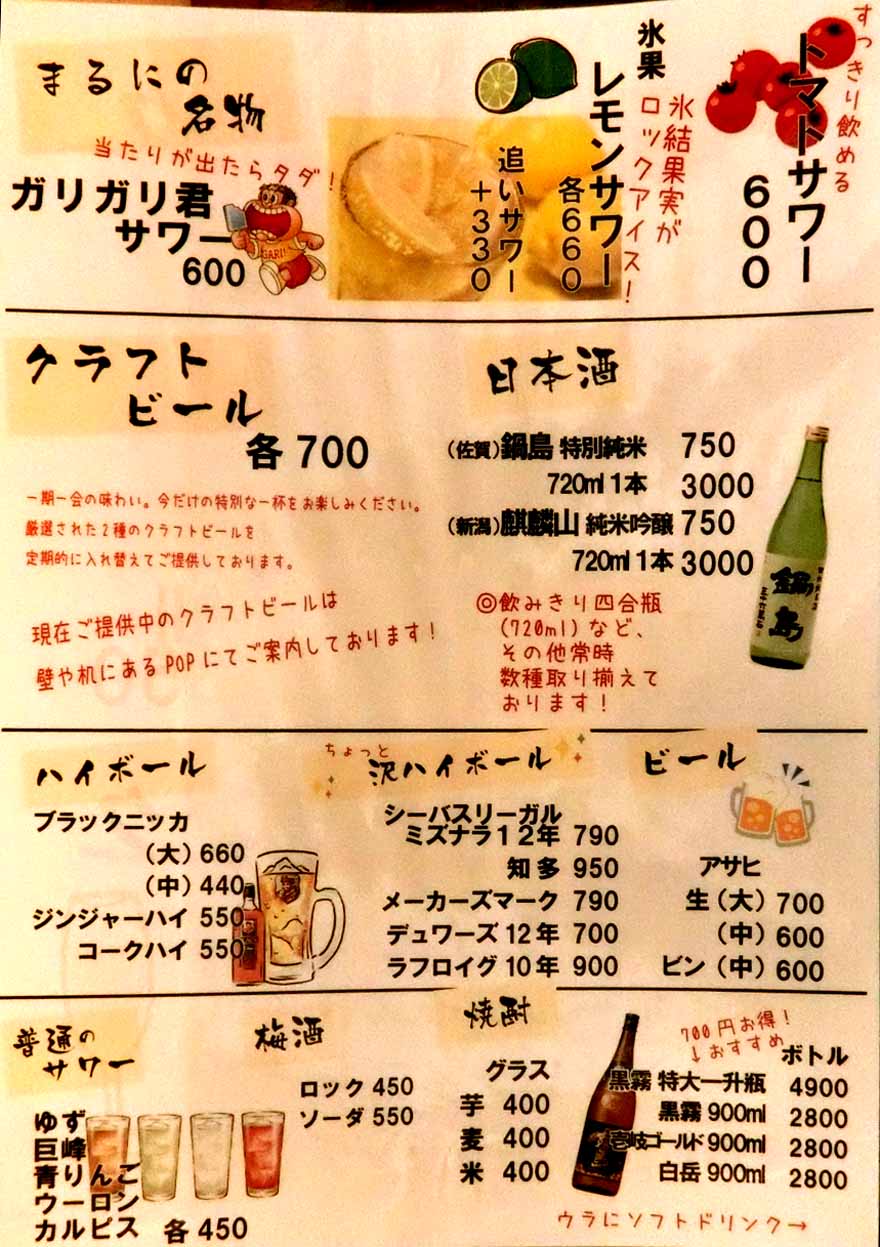 まるにの
名物
当たりが出たらタダ!
ガリガリ君
サワー
600
GARI!
氷果
レモンサワー
各660
追いサワー
+330
氷結果実が
ロックアイス!
すっきり飲める
トマトサワー
600
クラフト
ビール
各 700
一期一会の味わい。今だけの特別な一杯をお楽しみください。
厳選された2種のクラフトビールを
定期的に入れ替えてご提供しております。
現在ご提供中のクラフトビールは
壁や机にあるPOPにてご案内しております!
日本酒
(佐賀)鍋島 特別純米 750
720ml 1本 3000
(新潟)麒麟山 純米吟醸 750
720ml 1本 3000
◎飲みきり四合瓶
(720ml)など、
その他常時
数種取り揃えて
おります!
鍋島
ハイボール
ブラックニッカ
(大) 660
(中) 440
ジンジャーハイ 550
コークハイ 550
ちょっと
沢ハイボール
シーバスリーガル
ミズナラ12年 790
知多 950
メーカーズマーク 790
デュワーズ 12年 700
ラフロイグ 10年 900
ビール
アサヒ
生(大) 700
(中) 600
ビン(中) 600
普通の
サワー
ゆず
巨峰
青りんご
ウーロン
カルピス 各 450
梅酒
ロック 450
ソーダ 550
焼酎
グラス
芋 400
麦 400
米 400
700円お得!
↓おすすめ
ボトル
黒霧 特大一升瓶 4900
黒霧 900ml 2800
壱岐ゴールド 900ml 2800
白岳 900ml 2800
ウラにソフトドリンク→